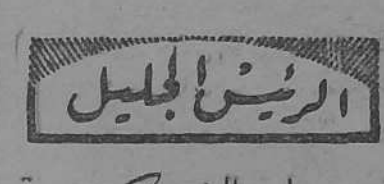 الرئيس الجليل